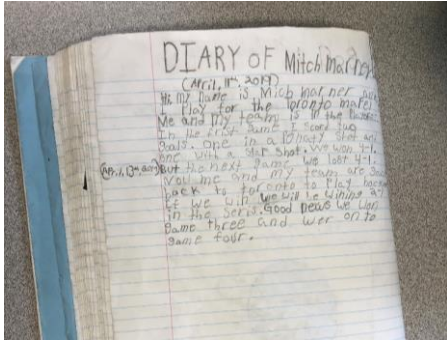 DIARY OF Mitch marner
(April, 11th, 2019)
Hi my name is Mich marner and
I play for the toronto maple
Me and my team is in the
In the first game I scord two
goals. One in a Penalty shot and
one with a slap shot. We won 4-1.
(April, 13th 2019) But the next game we lost 4-1.
Now me and my team are
back to toronto to play
If we win we will be wining 2-1
in the seris. Good news we won
game three and wer on to
game four.